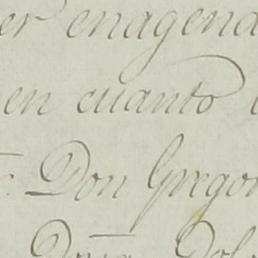 er enagena
en cuanto
Don Gregor
Doña Dol